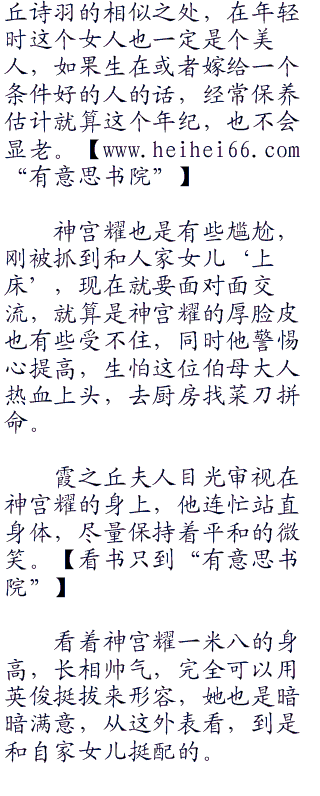 丘诗羽的相似之处，在年轻
时这个女人也一定是个美
人，如果生在或者嫁给一个
条件好的人的话，经常保养
估计就算这个年纪，也不会
显老。【www.heihei66.com
“有意思书院”】
神宫耀也是有些尴尬，
刚被抓到和人家女儿‘上
床’，现在就要面对面交
流，就算是神宫耀的厚脸皮
也有些受不住，同时他警惕
心提高，生怕这位伯母大人
热血上头，去厨房找菜刀拼
命。
霞之丘夫人目光审视在
神宫耀的身上，他连忙站直
身体，尽量保持着平和的微
笑。【看书只到“有意思书
院”】
看着神宫耀一米八的身
高，长相帅气，完全可以用
英俊挺拔来形容，她也是暗
暗满意，从这外表看，到是
和自家女儿挺配的。